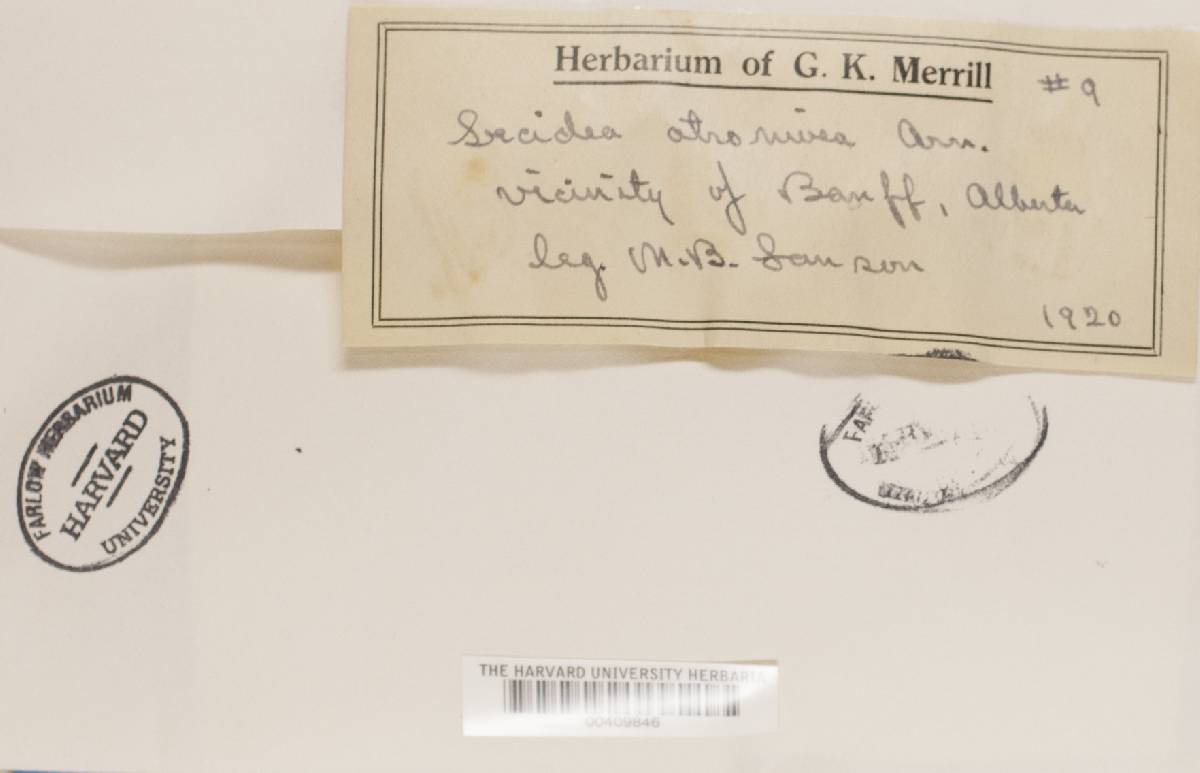 Herbarium of G. K. Merrill
#9
Lecidea atronivea Arn.
vicinity of Banff, Alberta
leg. M.B. Sanson
1920
FARLOW HERBARIUM
HARVARD
UNIVERSITY
FAR
THE HARVARD UNIVERSITY HERBARIA
00409846